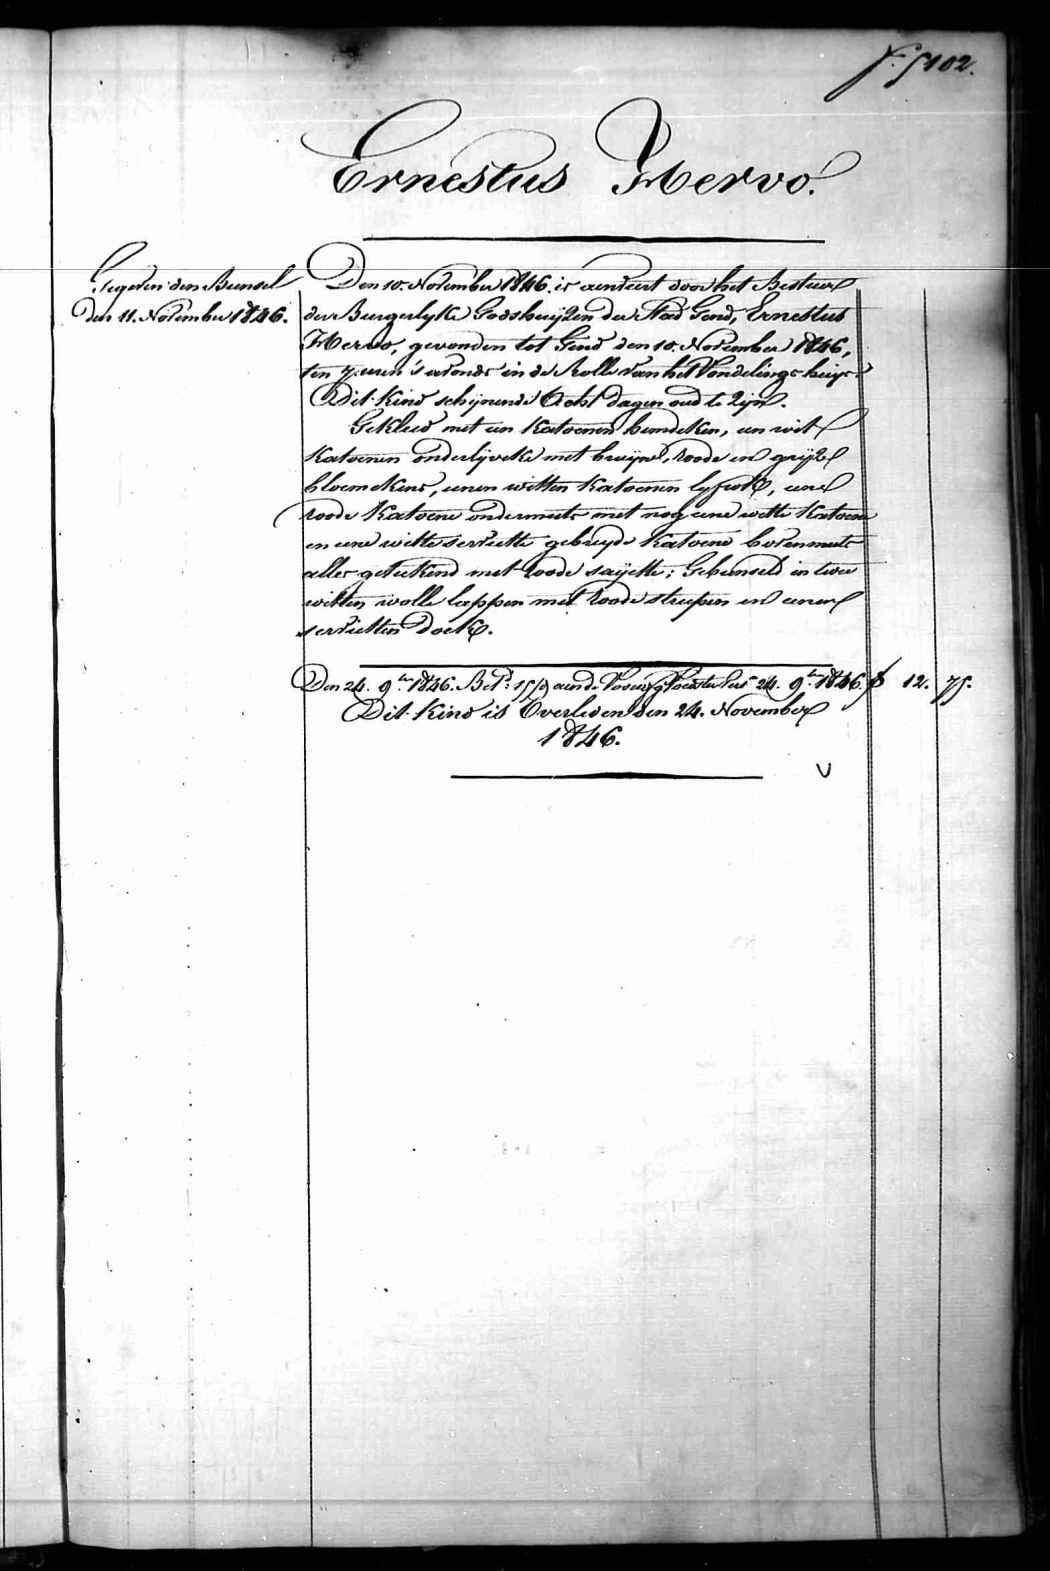 f° 5102.
Ernestus Hervo.
Gegeven den Bunsel
den 11. November 1846.
Den 10. November 1846. is aenveert door het Bestuer
der Burgerlyke Godshuyzen der Stad Gend, Ernestus
Hervo, gevonden tot Gend den 10. November 1846,
ten 7 uren 's avonds in de Rolle van het Vondelingshuys.
Dit kind schynende Acht dagen oud te zyn.
Gekleed met een katoenen hemdeken, een wit
katoenen onderlyveke met bruyne, roode en gryze
bloemekens, eenen witten katoenen lyfrok, eene
roode katoene ondermuts met nog eene witte katoene
en eene witte serviette gebreyde katoene bovenmuts
alles geteekend met roode sayette; Gebunseld in twee
witten wolle lappen met roode streepen en eenen
servietten doek.
Den 24. 9ber 1846. Bet. aen de 24. 9ber 1846. f 12. 75.
Dit kind is Overleden den 24. November
1846.
V